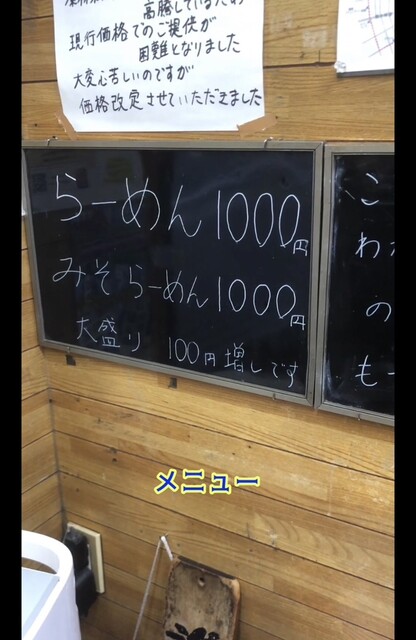 高騰しているため
現行価格でのご提供が
困難となりました
大変心苦しいのですが
価格改定させていただきました
らーめん 1000円
みそらーめん 1000円
大盛り 100円増しです
こ
わか
の
も
メニュー